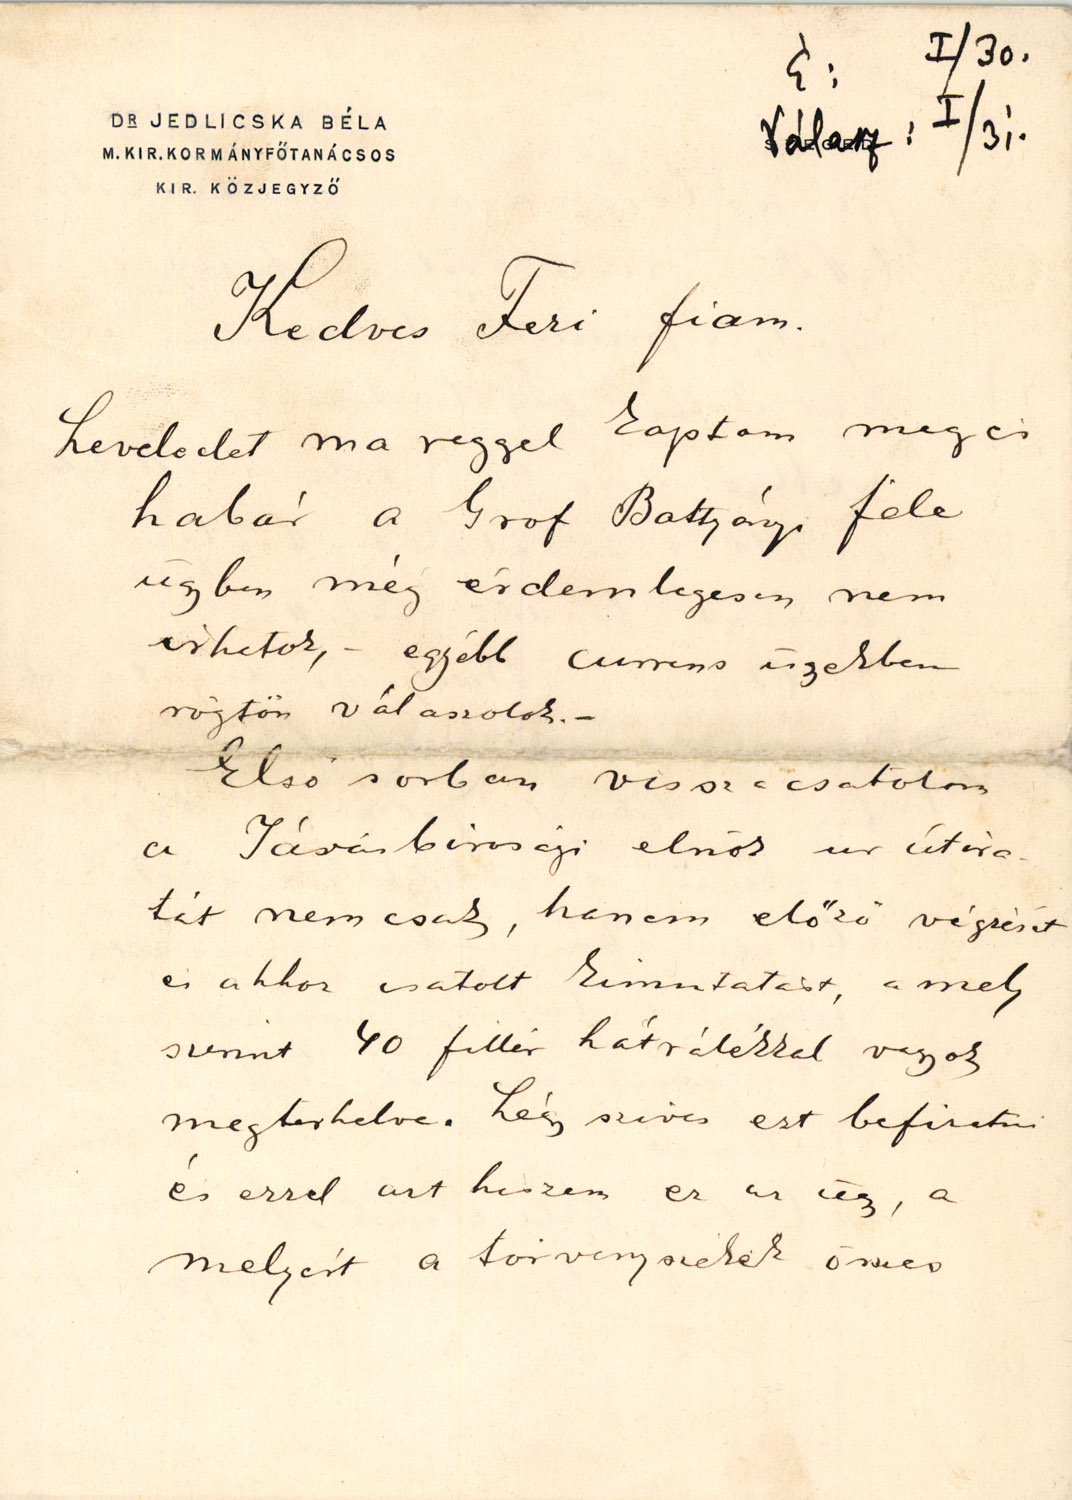 É: I/30.
Válasz: I/31.
DR JEDLICSKA BÉLA
M. KIR. KORMÁNYFŐTANÁCSOS
KIR. KÖZJEGYZŐ
Kedves Feri fiam.
Leveledet ma reggel kaptam meg és
habár a Grof Battyányi féle
ügyben még érdemlegesen nem
irhatok, - egyébb currens ügyekben
rögtön válaszolok. -
Első sorban visszacsatolom
a Járásbirosági elnök ur átira-
tát nemcsak, hanem előző végzését
és ahhoz csatolt kimutatást, a mely
szerint 40 fillér hátrálékkal vagyok
megterhelve. Légy szives ezt befizetni
és ezzel azt hiszem ez az ügy, a
melyért a törvényszékek összes